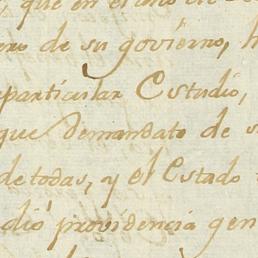 , que en el
ro de su govierno, h
particular Estudio,
que demandato de s
de todas, y el Estado
dió providencia gen